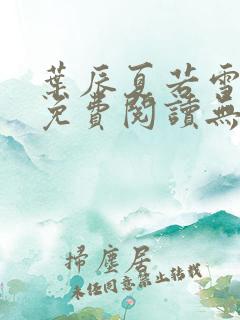 葉辰夏若雪
免費閱讀無
掃塵居
未经同意禁止转载